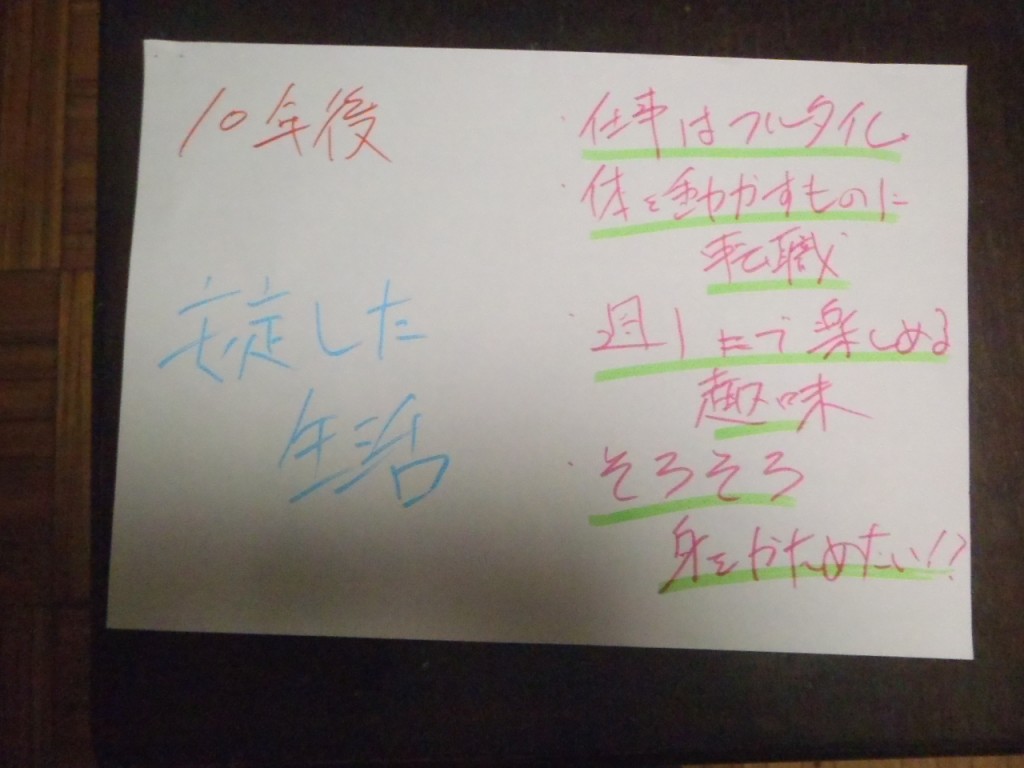 10年後
安定した
生活
・仕事はフルタイム
・体を動かすものに
転職
・週1ペースで楽しめる
趣味
・そろそろ
身をかためたい!?